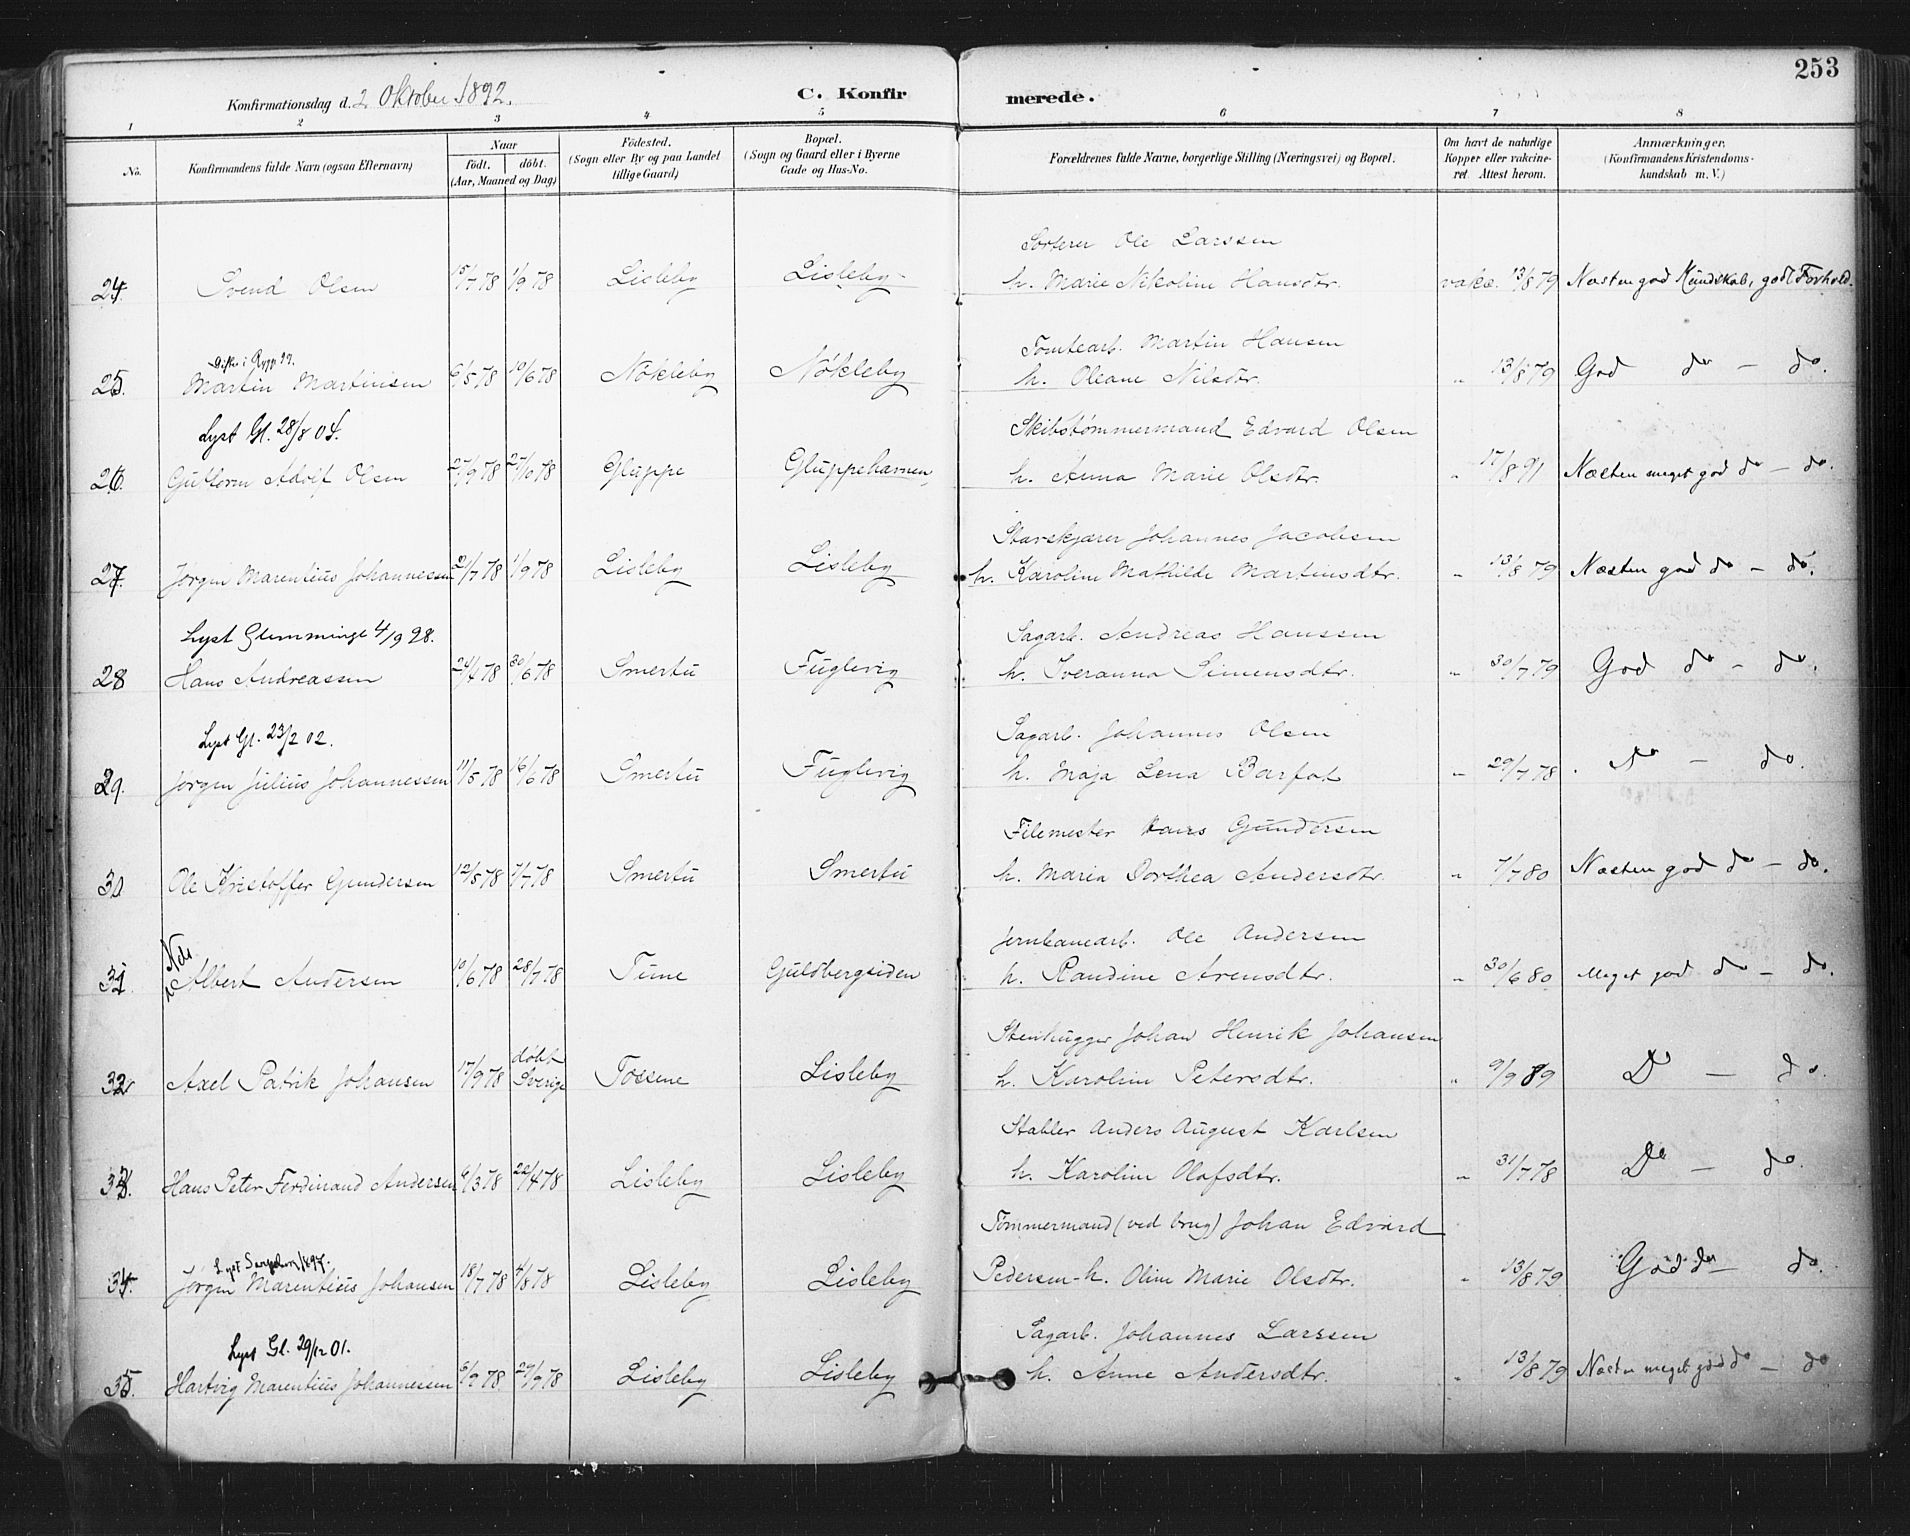 253
Konfirmationsdag d. 2 Oktober 1892.
C. Konfirmerede.
1 2 3 4 5 6 7 8
No.
Konfirmandens fulde Navn (ogsaa Efternavn)
Naar
födt. döbt.
(Aar, Maaned og Dag)
Födested.
(Sogn eller By og paa Landet
tillige Gaard)
Bopæl.
(Sogn og Gaard eller i Byerne
Gade og Hus-No.
Forældrenes fulde Navne, borgerlige Stilling (Næringsvei) og Bopæl.
Om havt de naturlige
Kopper eller vakcine-
ret Attest herom.
Anmærkninger,
(Konfirmandens Kristendoms-
kundskab m. V.)
Sorterer Ole Larssen
24. Svend Olsen 15/7 78 1/9 78 Lisleby Lisleby h. Marie Nikoline Hansdtr. vakc. 13/8 79 Næsten god Kundskab, godt Forhold.
Tomtearb. Martin Hansen
25. Martin Martinisen 6/5 78 10/6 78 Nökleby Nökleby h. Oleane Nilsdtr. " 13/8 79 God do – do.
Lyst Gl. 28/8 04. Skibstömmermand Edvard Olsen
26. Guttorm Adolf Olsen 27/9 78 27/10 78 Gluppe Gluppehavnen h. Anna Marie Olsdtr. " 17/8 91 Næsten meget god do – do.
Stavskjærer Johannes Jacobsen
27. Jörgen Marentius Johannessen 21/7 78 1/9 78 Lisleby Lisleby h. Karoline Mathilde Martinsdtr. " 13/8 79 Næsten god do – do.
Lyst Glemminge 4/9 98. Sagarb. Andreas Hanssen
28 Hans Andreassen 24/4 78 30/6 78 Smertu Fuglevig h. Sveranna Simensdtr. " 30/7 79 God do – do.
Lyst Gl. 23/2 02. Sagarb. Johannes Olsen
29. Jörgen Julius Johannessen 11/5 78 16/6 78 Smertu Fuglevig h. Maja Lena Barfot " 29/7 78 . do – do.
Filemester Hans Gundersen
30 Ole Kristoffer Gundersen 12/5 78 7/7 78 Smertu Smertu h. Maria Dorthea Andersdtr. " 7/7 80 Næsten god do – do.
Jernbanearb. Ole Andersen
31. Albert Andersen 10/6 78 28/7 78 Tune Guldbergsiden h. Randine Arensdtr. " 30/6 80 Meget god do – do.
Stenhugger Johan Henrik Johansen
32 Axel Patrik Johansen 17/9 78 döbt Sverige Tossene Lisleby h. Karoline Petersdtr. " 9/9 89 Do – do.
Stabler Anders August Karlsen
33. Hans Peter Ferdinand Andersen 6/3 78 22/4 78 Lisleby Lisleby h. Karoline Olafsdtr. " 31/7 78 Do – do.
Tömmermand (ved brug) Johan Edvard
34. Jörgen Marentius Johansen 18/7 78 4/8 78 Lisleby Lisleby Pedersen – h. Oline Marie Olsdtr. " 13/8 79 God do – do.
Lyst Gl. 29/12 01. Sagarb. Johannes Larssen
35. Hartvig Marentius Johannessen 6/9 78 29/9 78 Lisleby Lisleby h. Anne Andersdtr. " 13/8 79 Næsten meget god do – do